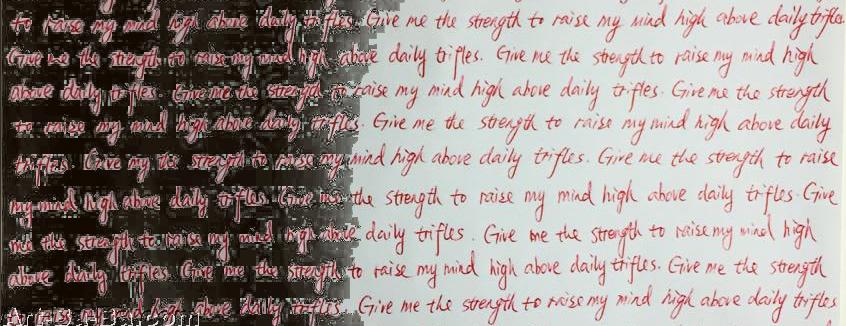 to raise my mind high above daily trifles. Give me the strength to raise my mind high above daily trifles.
Give me the strength to raise my mind high above daily trifles. Give me the strength to raise my mind high
above daily trifles. Give me the strength to raise my mind high above daily trifles. Give me the strength
to raise my mind high above daily trifles. Give me the strength to raise my mind high above daily
trifles. Give my the strength to raise my mind high above daily trifles. Give me the strength to raise
my mind high above daily trifles. Give me the strength to raise my mind high above daily trifles. Give
me the strength to raise my mind high above daily trifles. Give me the strength to raise my mind high
above daily trifles. Give me the strength to raise my mind high above daily trifles. Give me the strength
to raise my mind high above daily trifles. Give me the strength to raise my mind high above daily trifles